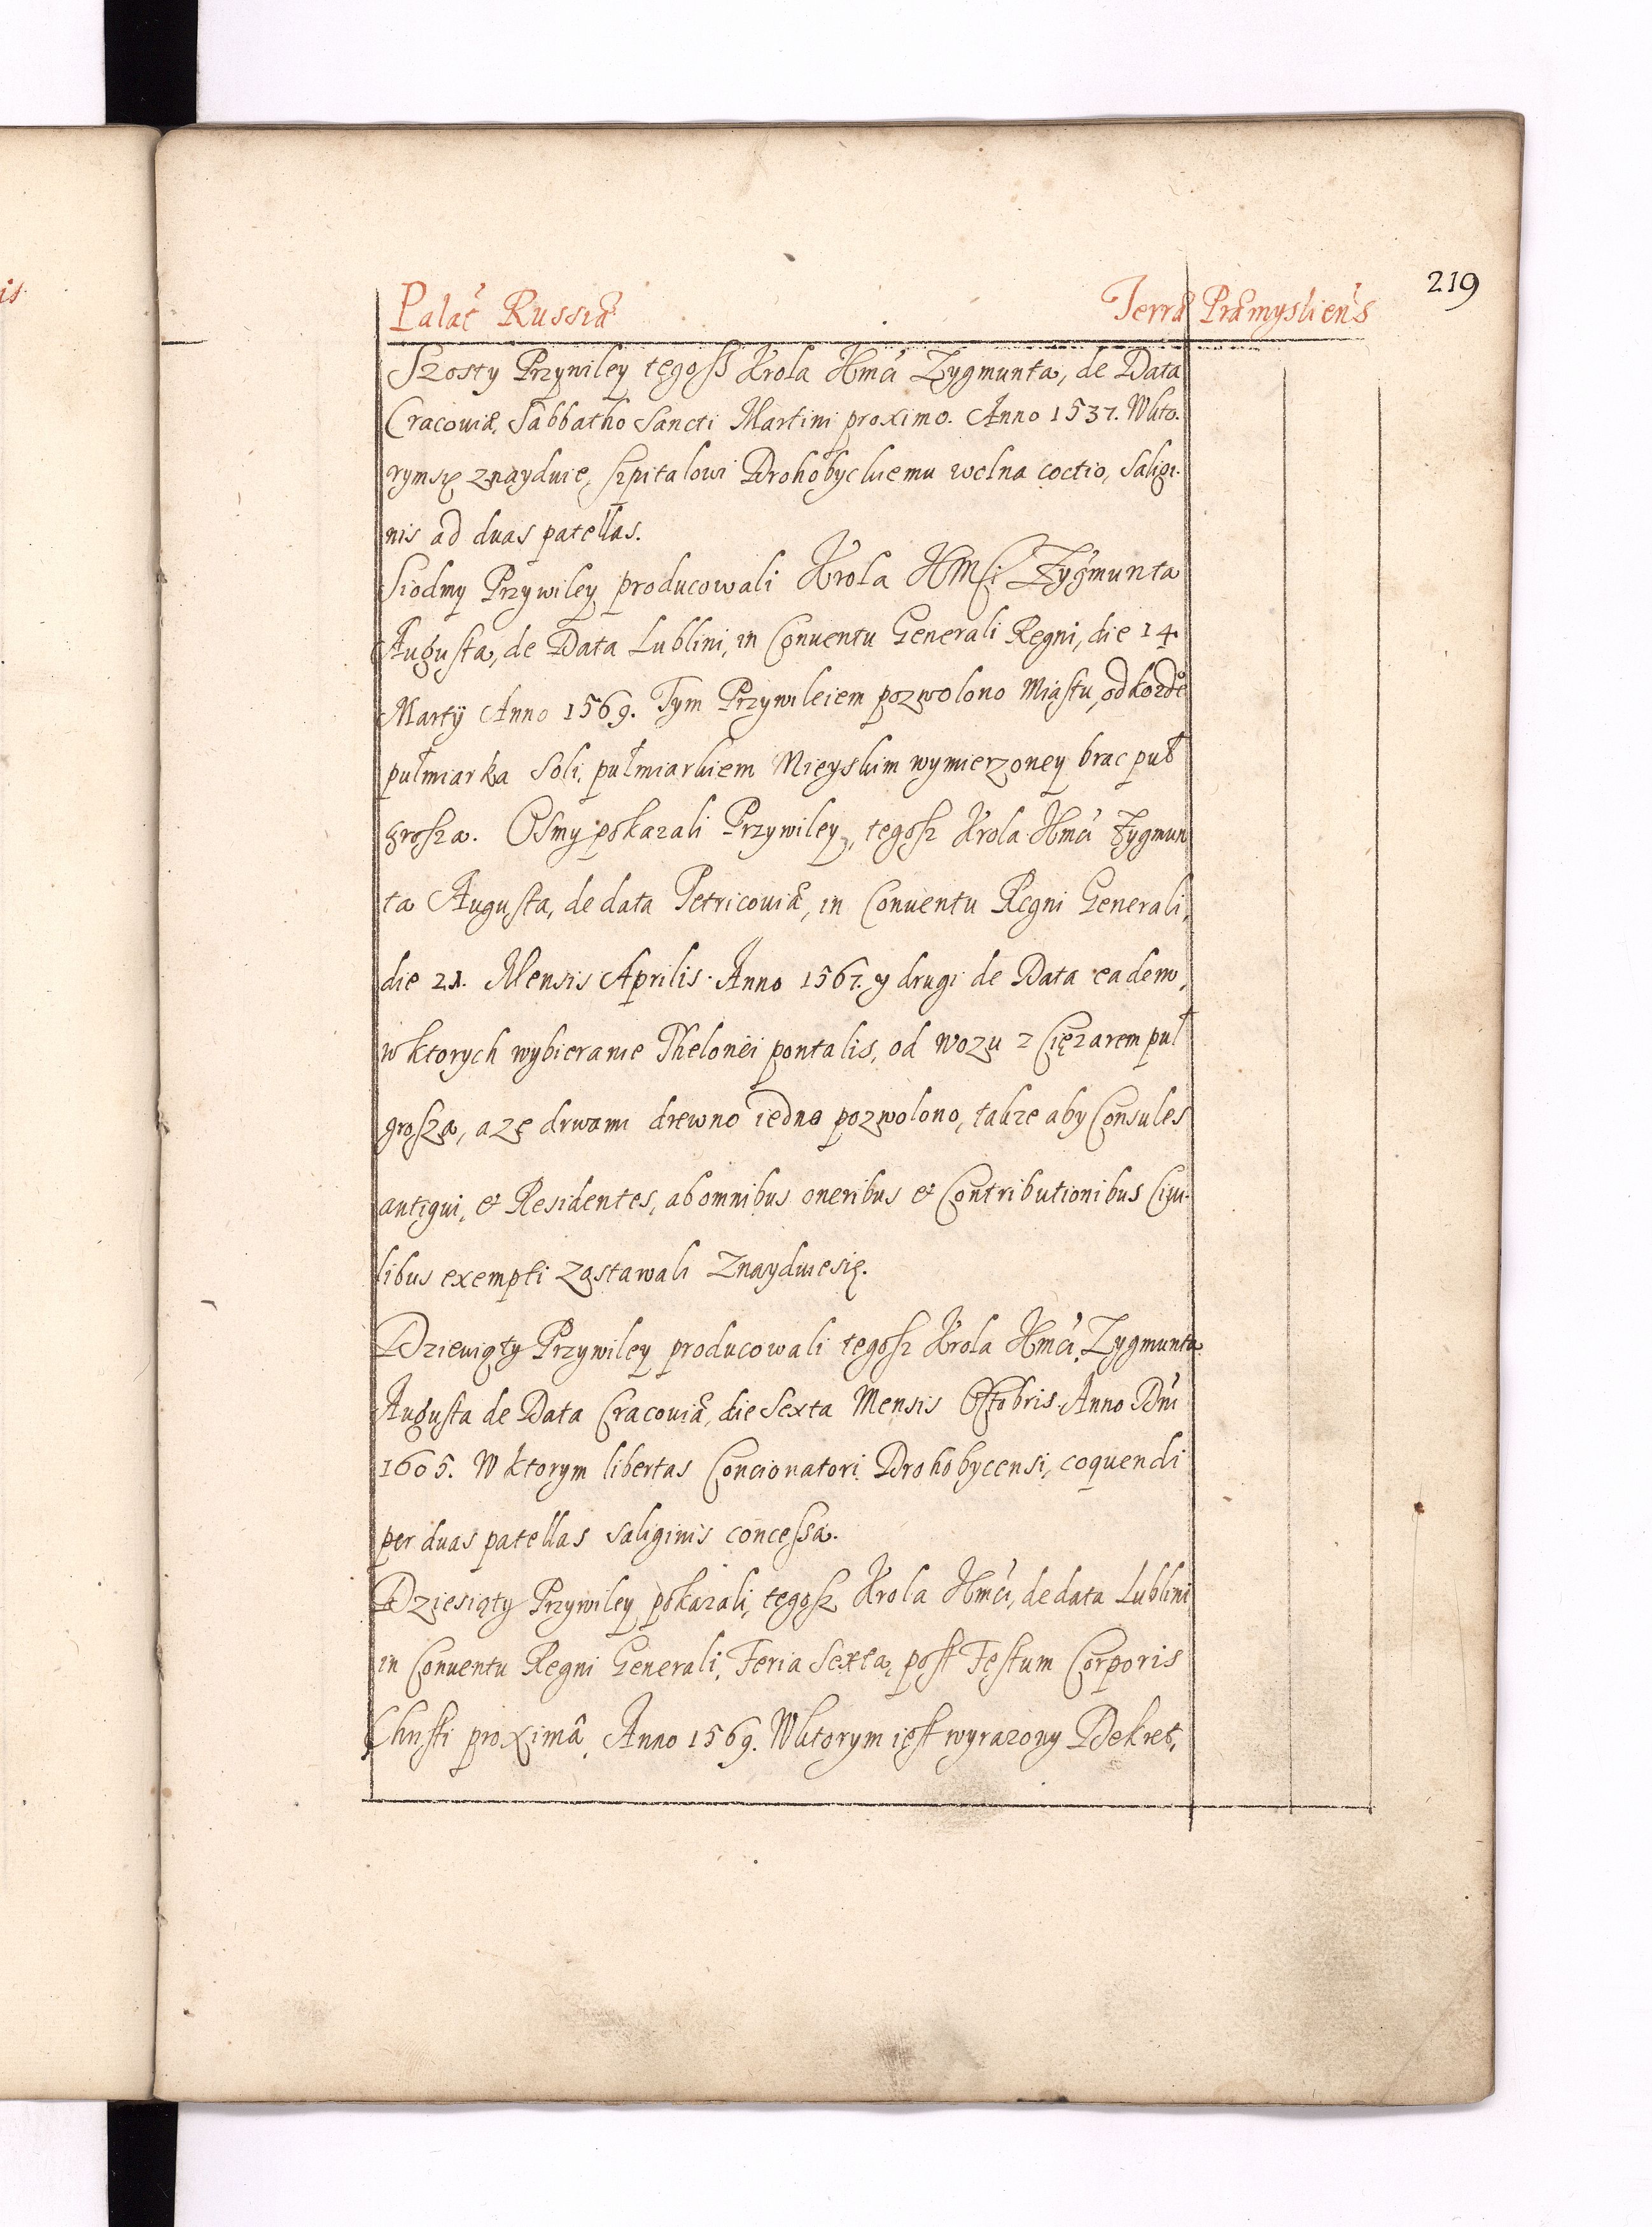 is
219
Palat Russiæ Terræ Præmysliens
Szosty Przywiley tegosz Krola Jmci Zygmunta, de Data
Cracoviæ, Sabbatho Sancti Martini proximo. Anno 1537. Wkto-
rymsię znayduie, szpitalowi Drohobyckiemu wolna coctio, saligi-
nis ad duas patellas.
Siodmy Przywiley producowali Krola JMści Zygmunta
Augusta, de Data Lublini, in Conuentu Generali Regni, die 14
Martÿ Anno 1569. Tym Przywileiem pozwolono Miastu, od kozdeº
pułmiarka Soli, pułmiarkiem Mieyskim wymierzoney brac puł
grosza. Osmy pokazali Przywiley, tegosz Krola Jmci Zygmun
ta Augusta, de data Petricouiæ, in Conuentu Regni Generali,
die 21. Mensis Aprilis. Anno 1567. y drugi de Data eadem,
w ktorych wybieranie Thelonei pontalis, od wozu z Ciężarem puł
grosza, a ze drwami drewno iedno pozwolono, takze aby Consules
antiqui, et Residentes, ab omnibus oneribus et Contributionibus Ciui-
libus exempti zostawali Znayduiesię.
Dziewiąty Przywiley producowali tegosz Krola Jmci, Zygmunta
Augusta de Data Cracouiæ, die Sexta Mensis Octobris. Anno Dni
1605. W ktorym libertas Concionatori Drohobycensi, coquendi
per duas patellas saliginis concessa.
Dziesiąty Przywiley pokazali, tegosz Krola Jmci, de data Lublini
in Conuentu Regni Generali, Feria Sexta, post Festum Corporis
Christi proximâ, Anno 1569. Wktorym iest wyrazony Dekret,